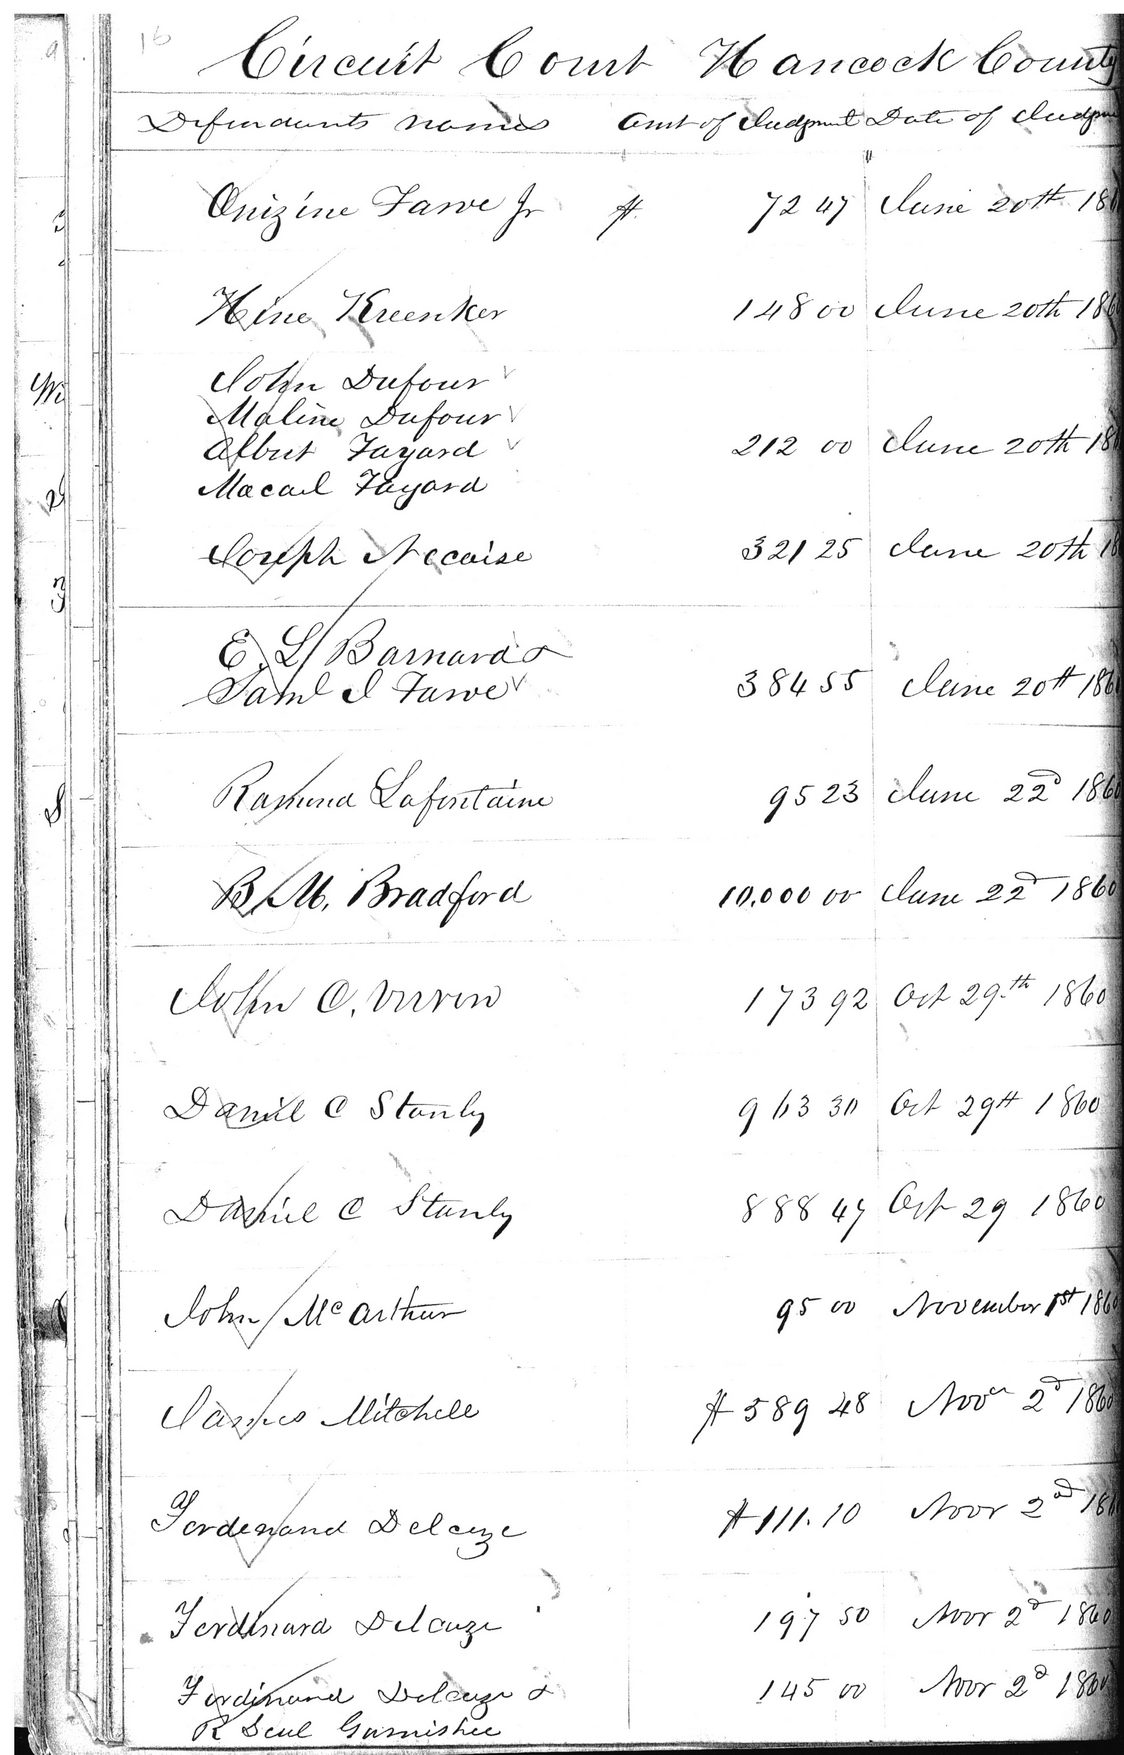 16
Circuit Court Hancock County
Defendants names Amt of Judgment Date of Judgm
Onizine Farve Jr $ 72 47 June 20th 186
Hine Kreenker 148 00 June 20th 186
John Dufour
Maline Dufour
Albert Fayard 212 00 June 20th 18
Macail Fayard
Joseph Necaise 321 25 June 20th 18
E. L. Barnard &
Saml J Farve 384 55 June 20th 186
Ramond Lafontaine 95 23 June 22d 1860
B. M. Bradford 10,000 00 June 22d 1860
John C. 173 92 Oct 29th 1860
Daniel C Stanly 963 30 Oct 29th 1860
Daniel C Stanly 888 47 Oct 29 1860
John McArthur 95 00 November 1st 1860
James Mitchell $ 589 48 Novr 2d 1860
Ferdenand Deleuze $ 111.10 Novr 2d 186
Ferdinand Deleuze 197 50 Novr 2d 1860
Ferdinand Deleuze &
R Seul Garnishee 145 00 Novr 2d 1860